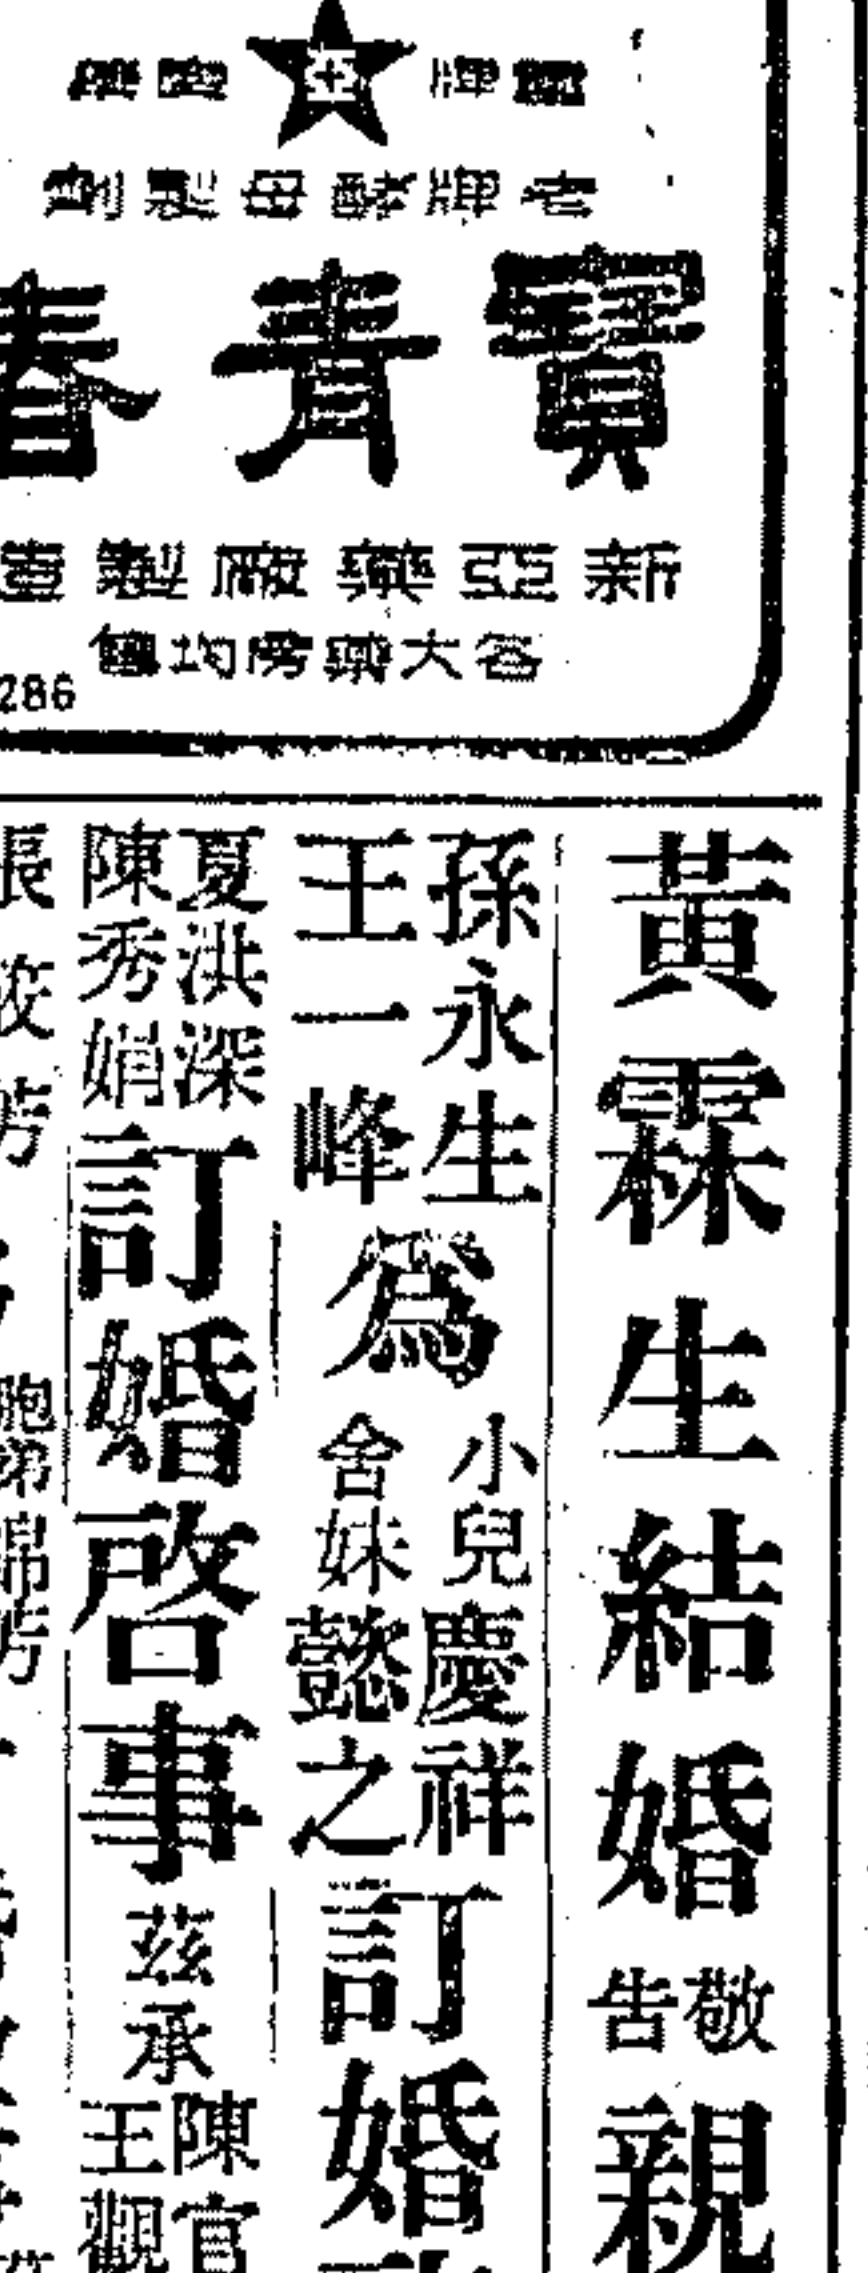 老牌酵母製劑
寶青春
新亞藥廠製造
各大藥房均售
286
黃霖生結婚敬告親
孫永生
王一峰
為
小兒慶祥
舍妹懿之
訂婚
夏洪深
陳秀娟
訂婚啓事茲承
陳官
王觀
張
芳
胞弟錦芳